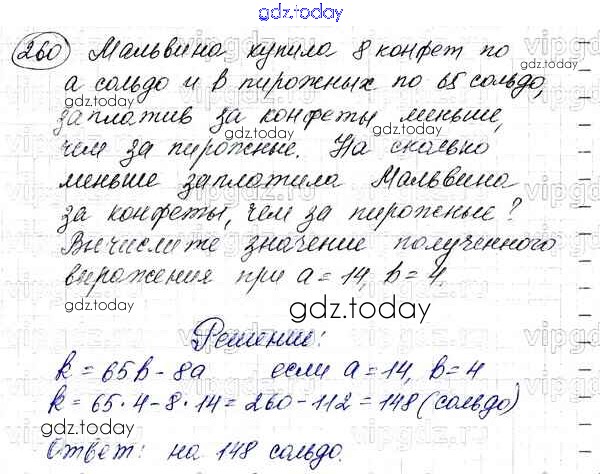 gdz.today
260 Мальвина купила 8 конфет по
а сольдо и в пирожных по 65 сольдо,
gdz.today
gdz.today
заплатив за конфеты меньше,
gdz.today
gdz.today
чем за пирожные. На сколько
меньше заплатила Мальвина
gdz.today
за конфеты, чем за пирожные?
Вычислите значение полученного
выражения при а = 14, в = 4.
gdz.today
gdz.today
Решение:
k = 65в - 8а если а = 14, в = 4
k = 65 · 4 - 8 · 14 = 260 - 112 = 148 (сольдо)
Ответ: на 148 сольдо.